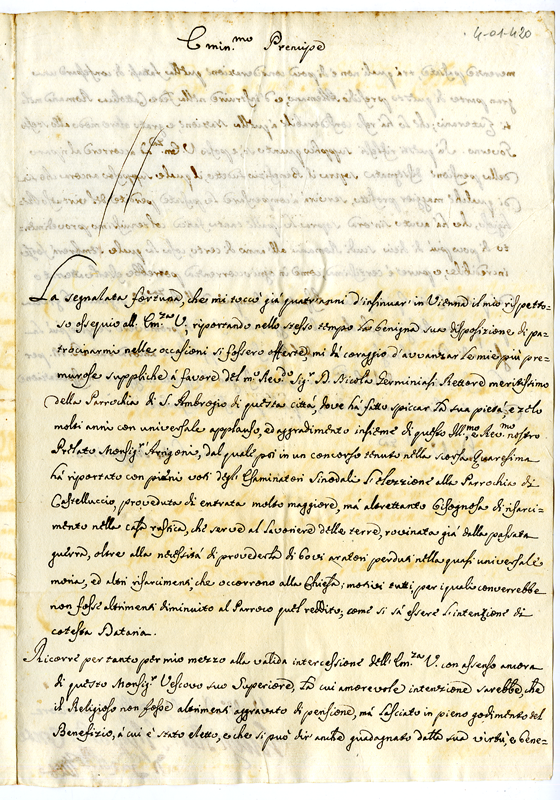 4-01-420
Emin.mo Prencipe
La segnalata fortuna, che mi toccò già quattr'anni d'insinuar in Vienna il mio rispetto=
so ossequio all' Em.za V. riportando nello stesso tempo la benigna sua disposizione di pa=
trocinarmi nelle occasioni si fossero offerte, mi dà coraggio d'avvanzar le mie più pre=
murose suppliche à favore del m.o Rev.do Sig.r D. Nicola Germiniasi Rettore meritissimo
della Parrochia di S. Ambrogio di questa città, dove hà fatto spiccar la sua pietà, e zelo
molti anni con universale applauso, ed aggradimento insieme di questo Ill.mo e Rev.mo nostro
Prelato Monsig.r Arrigoni, dal quale poi in un concorso tenuto nella scorsa Quaresima
hà riportato con pieni voti degli Esaminatori Sinodali l'elezzione alla Parrochia di
Castelluccio, proveduta di entrata molto maggiore, mà altrettanto bisognosa di risarci=
mento nella casa rustica, che serve al lavoriere delle terre, rovinata già dalla passata
guerra, oltre alla necessità di provederla di bovi aratori perduti nella quasi universal'e=
moria, ed altri risarcimenti, che occorrono alla Chiesa; motivi tutti, per i quali converrebbe
non fosse altrimenti diminuito al Parroco quel reddito, come si sà essere l'intenzione di
cotesta Dataria.
Ricorre per tanto per mio mezzo alla valida intercessione dell' Em.za V. con assenso ancora
di questo Monsig.r Vescovo suo Superiore, la cui amorevole intenzione sarebbe, che
il Religioso non fosse altrimenti aggravato di pensione, mà lasciato in pieno godimento del
Benefizio, à cui è stato eletto, e che si può dir anche guadagnato dalla sua virtù, e bene=